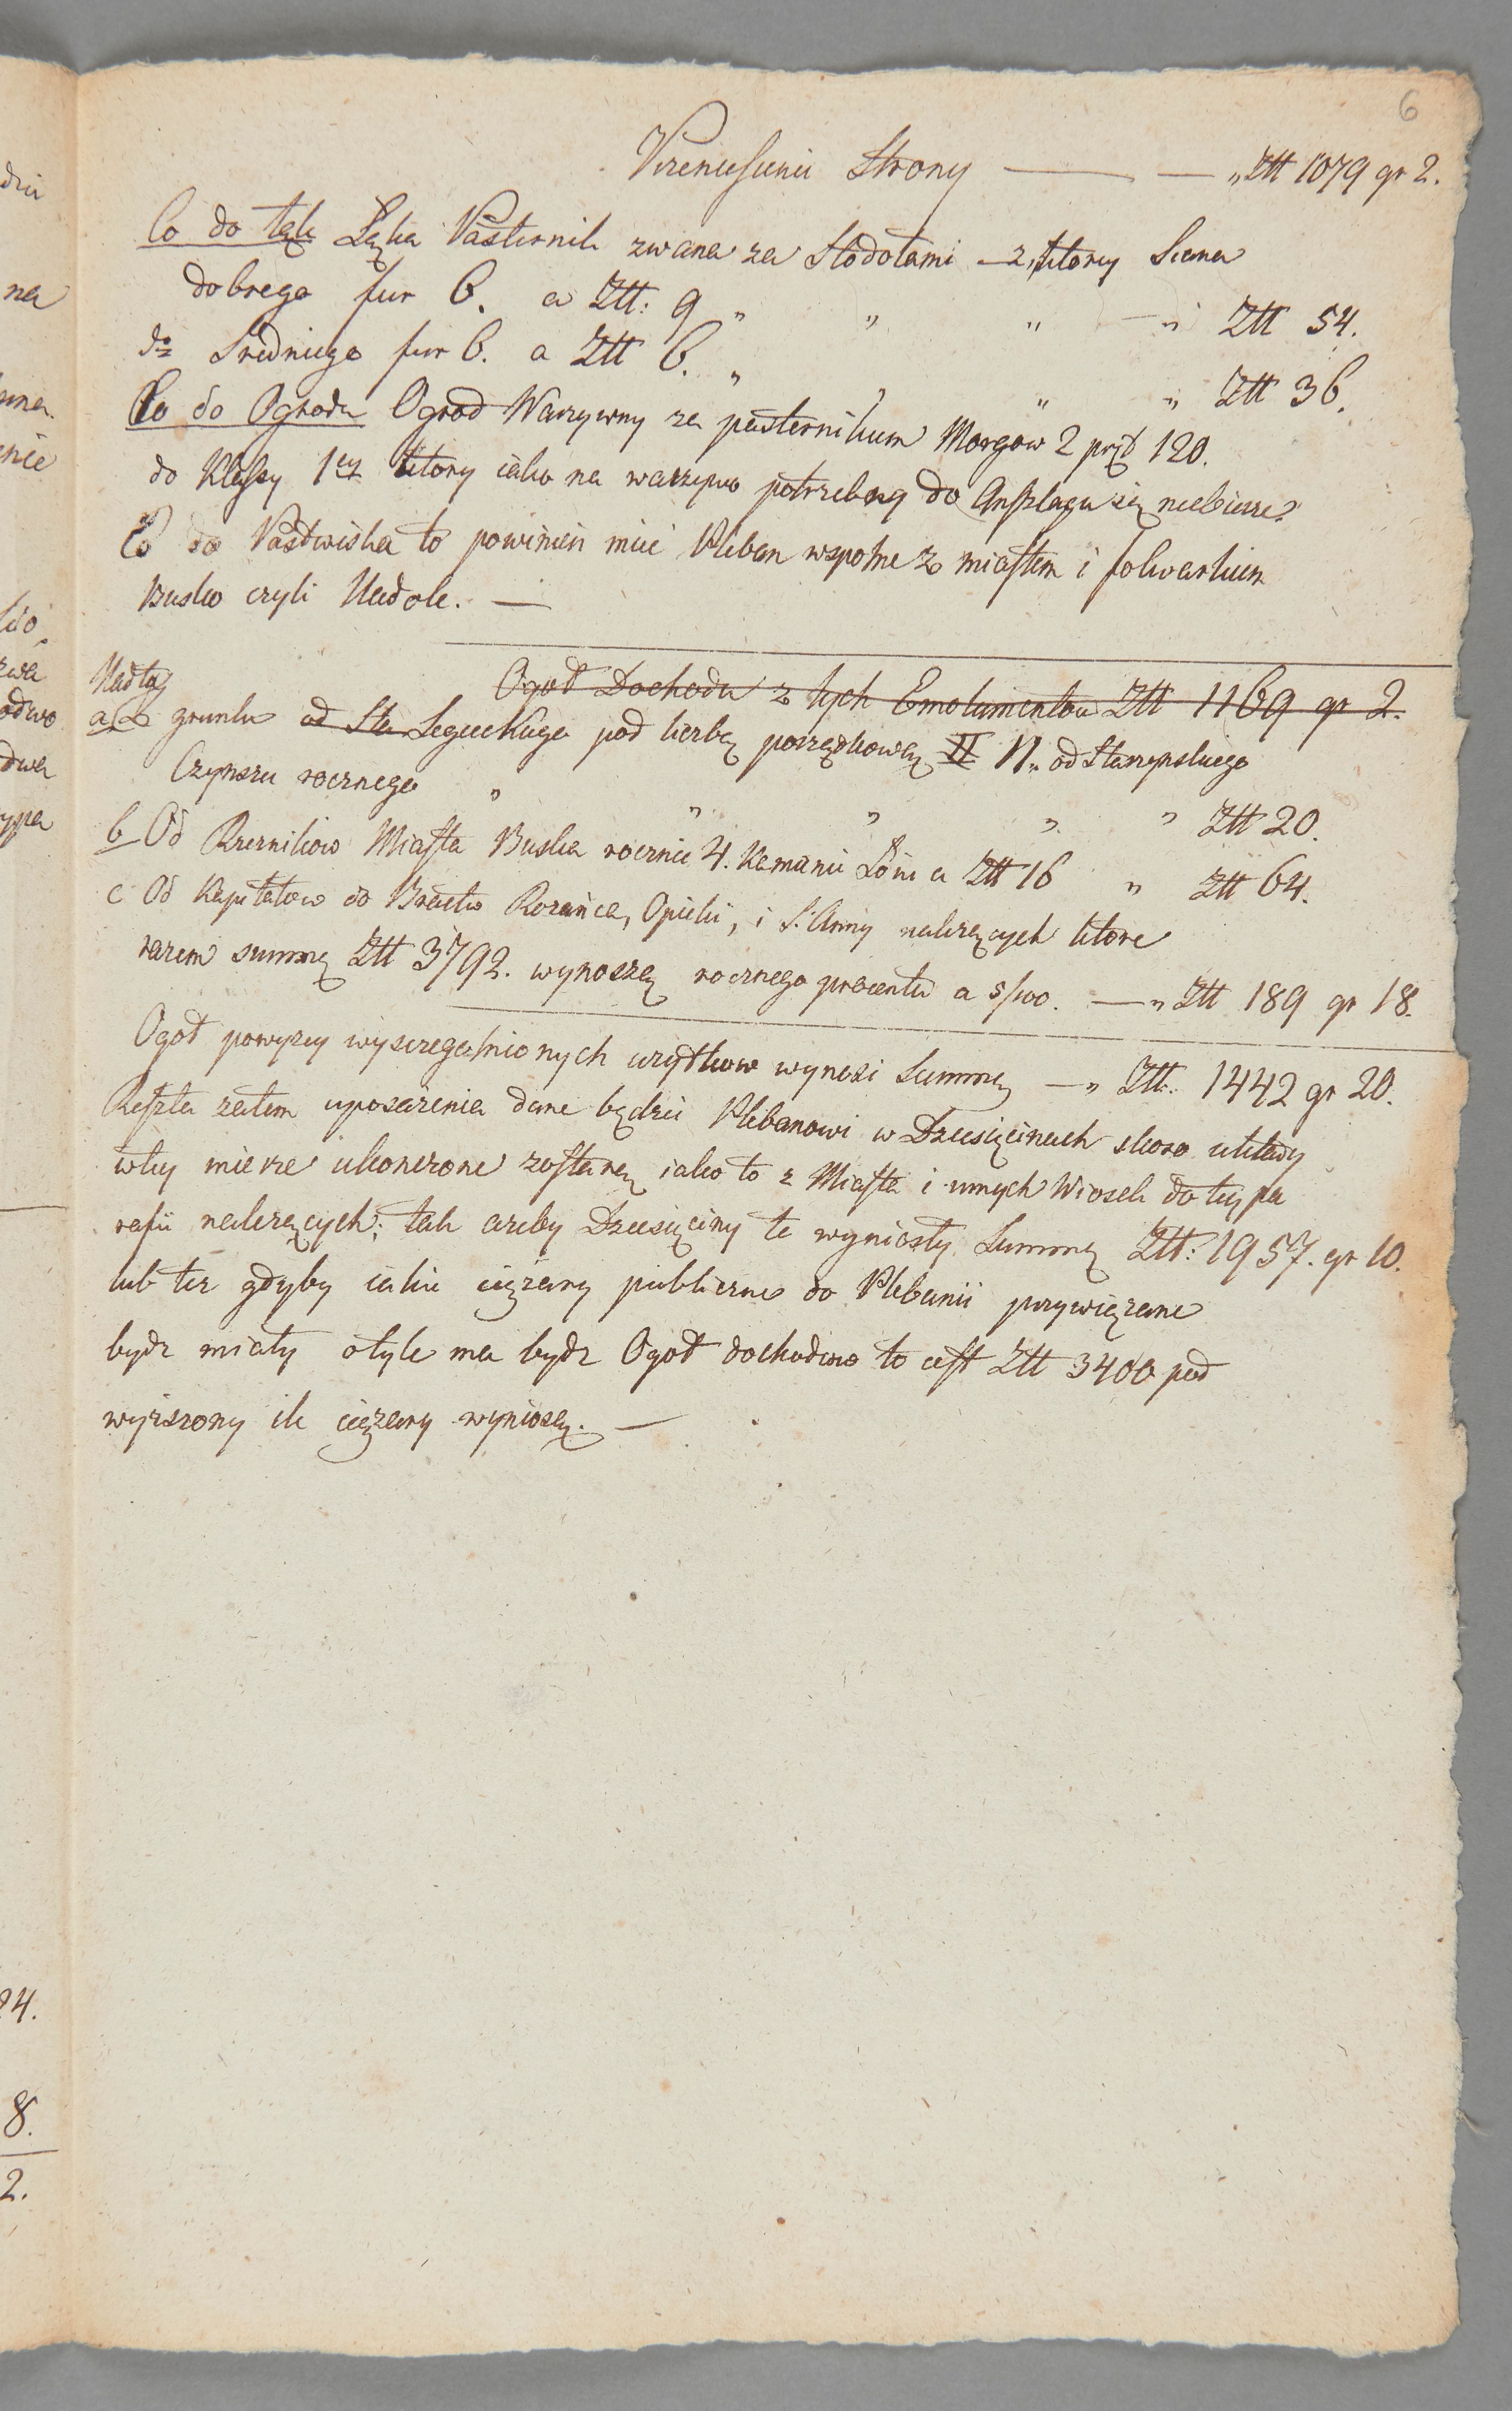 6
Przeniesienie Strony — — „ Złł 1079 gr 2.
Co do łąk Łąka Pasternik zwana za Stodołami — z ktorey Siana
dobrego fur 6. a Złł: 9 „ „ „ — „ Złł 54.
do Sredniego fur 6. a Złł 6. „ „ „ „ Złł 36.
Co do Ogrodu Ogrod Warzywny za pasternikiem Morgow 2 pręt 120.
do Klassy 1ey ktory iako na warzywo potrzebny do Anszlagu się niebierze.
Co do Pastwiska to powinien mieć Pleban wspolne z miastem i folwarkiem
Busko czyli Nadole. —
Ogoł Dochodu z tych Emolumentow Złł 1169 gr 2.
Nadto
a) z gruntu od Sta Legieckiego pod liczbą porządkową II 11. od Starzynskiego
Czynszu rocznego „ „ „ „ „ Złł 20.
b Od Rzeznikow Miasta Buska rocznie 4. Kamanie Łoiu a Złł 16 „ Złł 64.
c Od Kapitałow do Bractw Rozańca, Opieki, i S. Anny należących ktore
razem summę Złł 3792. wynoszą rocznego procentu a 5/100. — „ Złł 189 gr 18.
Ogoł powyzey wyszczegolnionych uzytkow wynosi Summę — „ Złł: 1442 gr 20.
Reszta zatem uposażenia dane będzie Plebanowi w Dziesięcinach skoro układy
wtey mierze ukonczone zostaną iako to z Miasta i innych Wiosek do tey pa
rafii należących; tak azeby Dziesięciny te wyniosły Summę Złł: 1957. gr 10.
lub tez gdyby iakie ciężary publiczne do Plebanii przywiązane
bydz miały otyle ma bydz Ogoł dochodow to iest Złł 3400 pod
wyzszony ile ciężary wyniosą. —